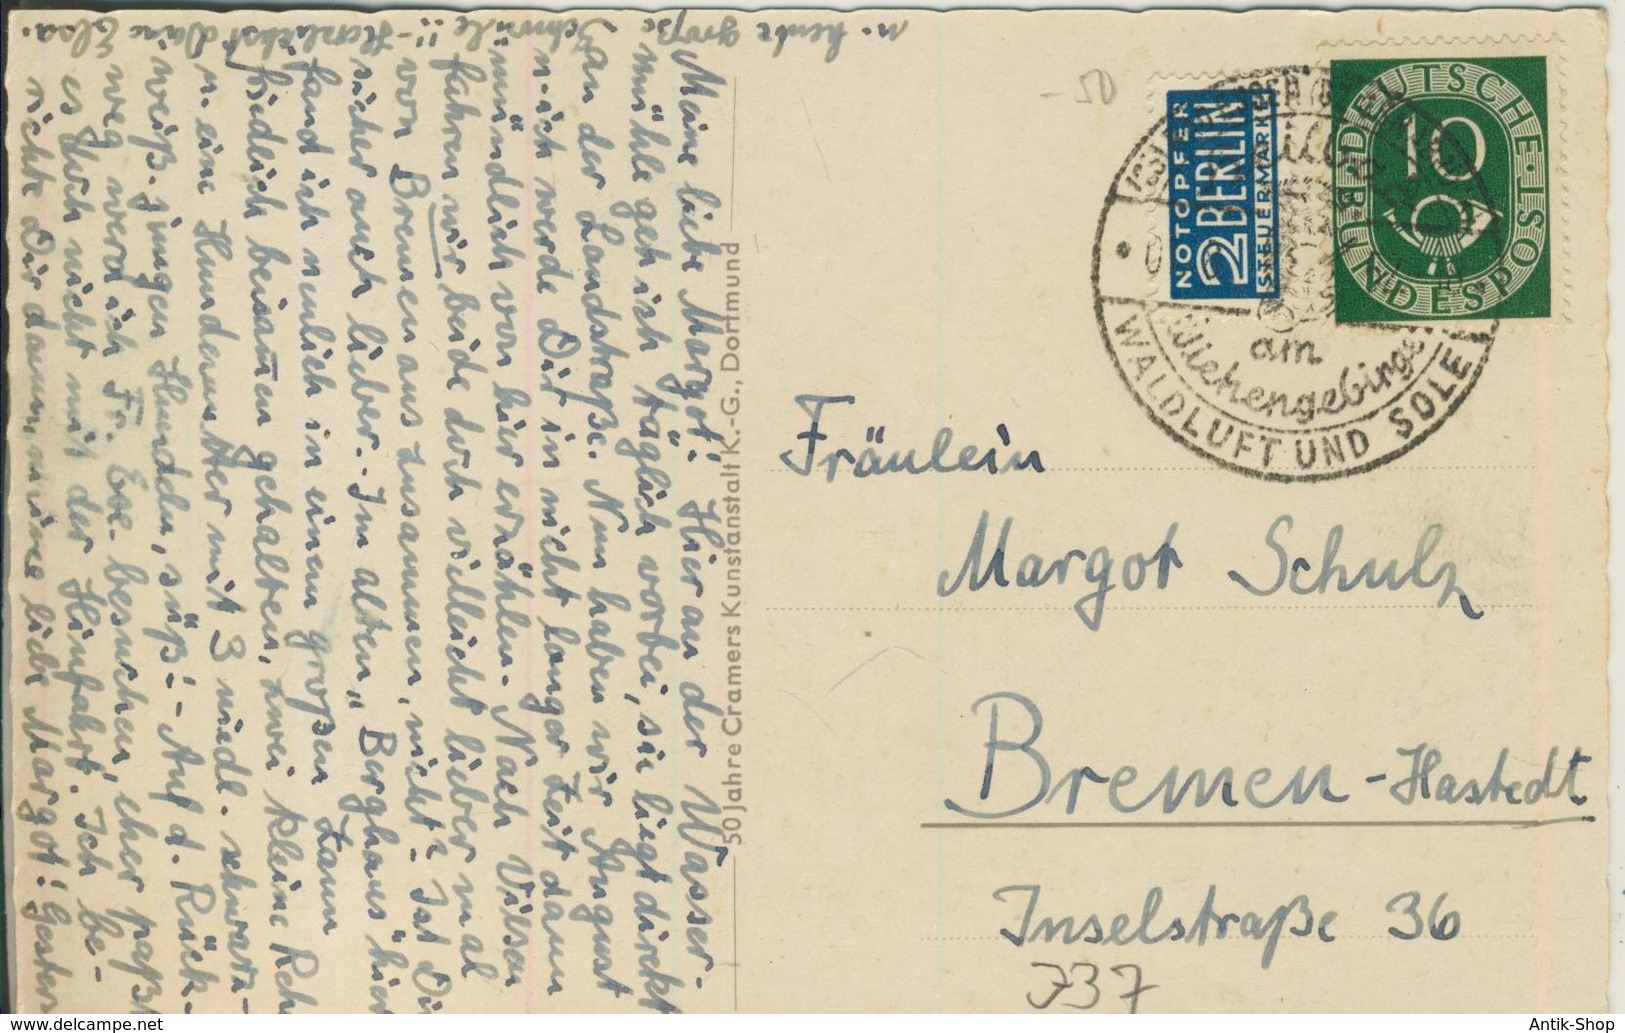 Meine liebe Margot! Hier an der Wasser-
mühle geh ich täglich vorbei, sie liegt direkt
an der Landstraße. Nun haben wir August
u. ich werde Dir in nicht langer Zeit dann
mündlich von hier erzählen. Nach
fahren wir beide doch vielleicht lieber mal
von Bremen aus zusammen, nicht? Ist Dir
sicher auch lieber. Im alten „Berghaus" hier
fand ich neulich in einem großen Zaun
friedlich beisamen gehalten, zwei kleine Reh
u. eine Hundemutter mit 3 niedl. schwarz-
weiß. jungen Hundeln, süß! - Auf d. Rück-
weg werd ich Fr. besuchen, eher paßt
es doch nicht mit der Hinfahrt. Ich be-
richte Dir dann, meine liebe Margot! Gestern
u. heute große
Schwüle!! - Herzlichst Deine Elsa.
50 Jahre Cramers Kunstanstalt K.-G., Dortmund
50
NOTOPFER
2 BERLIN
STEUERMARKE
DEUTSCHE BUNDESPOST
10
am
Wiehengebirge
WALDLUFT UND SOLE
Fräulein
Margot Schulz
Bremen-Hastedt
Inselstraße 36
337
Antik-Shop